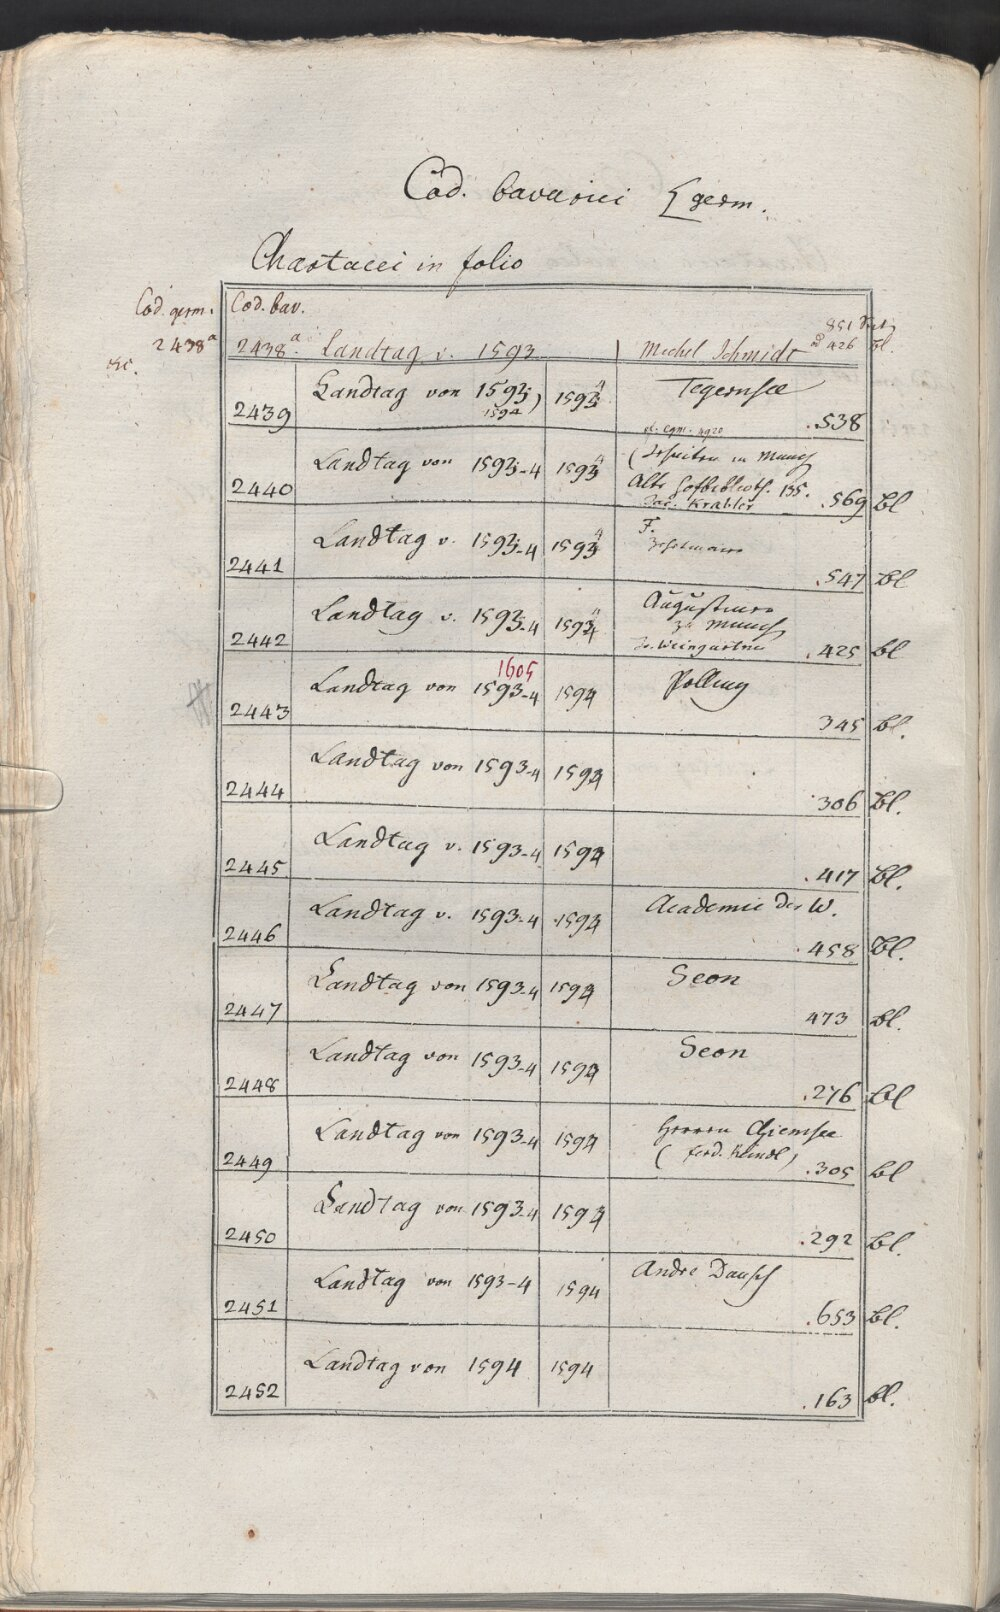 Cod. bavarici germ.
Chartacei in folio
Cod. germ. Cod. bav.
851
2438a 2438a. Landtag v. 1593 Michel Schmidt 426 Bl.
etc.
Landtag von 1593 1594 Tegernsee
2439 1594 .538
cf. Cgm. 4920
Landtag von 1593-4 1594 (Jesuiten in Münch
2440 Alte Hofbiblioth. 135. .569 Bl
Jac. Krabler
Landtag v. 1593-4 1594 F.
2441 .547 Bl
Landtag v. 1593-4 1594 Augustiner
zu Münch
2442 Jo. Weingartner .425 bl
1605
Landtag von 1593-4 1594 Polling
2443 345 bl.
Landtag von 1593-4 1594
2444 .306 Bl.
Landtag v. 1593-4 1594
2445 .417 Bl.
Landtag v. 1593-4 1594 Academie der W.
2446 .458 Bl.
Landtag von 1593-4 1594 Seon
2447 473 Bl.
Landtag von 1593-4 1594 Seon
2448 .276 Bl
Landtag von 1593-4 1594 Herren Chiemsee
(Ferd. Keindl)
2449 .305 bl
Landtag von 1593-4 1594
2450 .292 bl.
Landtag von 1593-4 1594 Andre Dausch
2451 .653 Bl.
Landtag von 1594 1594
2452 .163 bl.